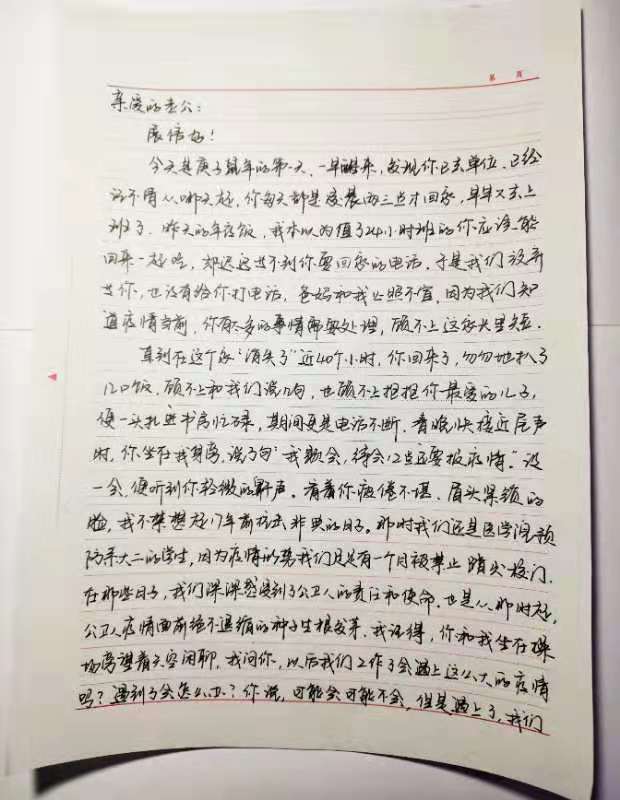 第 页
亲爱的老公:
展信好!
今天是庚子鼠年的第一天、一早醒来,发现你已去单位。已经
记不得从哪天起,你每天都是凌晨两三点才回家,早早又去上
班了。昨天的年夜饭,我本以为值了24小时班的你应该能
回来一起吃,却迟迟等不到你要回家的电话。于是我们没有
等你,也没有给你打电话,爸妈和我心照不宣,因为我们知
道疫情当前,你有太多的事情需要处理,顾不上这家长里短。
直到在这个家“消失了”近40个小时,你回来了,匆匆地扒了
几口饭,顾不上和我们说几句,也顾不上抱抱你最爱的儿子,
便一头扎进书房忙碌,期间更是电话不断。春晚快接近尾声
时,你坐在我身旁,说了句“我歇会,待会12点还要报疫情。”没
一会,便听到你轻微的鼾声。看着你疲倦不堪、眉头紧锁的
脸,我不禁想起17年前抗击非典的日子。那时我们还是医学院预
防系大二的学生,因为疫情的袭我们足足有一个月被禁止踏出校门。
在那些日子,我们深深感受到了公卫人的责任和使命。也是从那时起,
公卫人疫情面前绝不退缩的种子生根发芽。我记得,你和我坐在操
场旁望着天空闲聊,我问你,以后我们工作了会遇上这么大的疫情
吗?遇到了会怎么办?你说,可能会可能不会,但是遇上了,我们